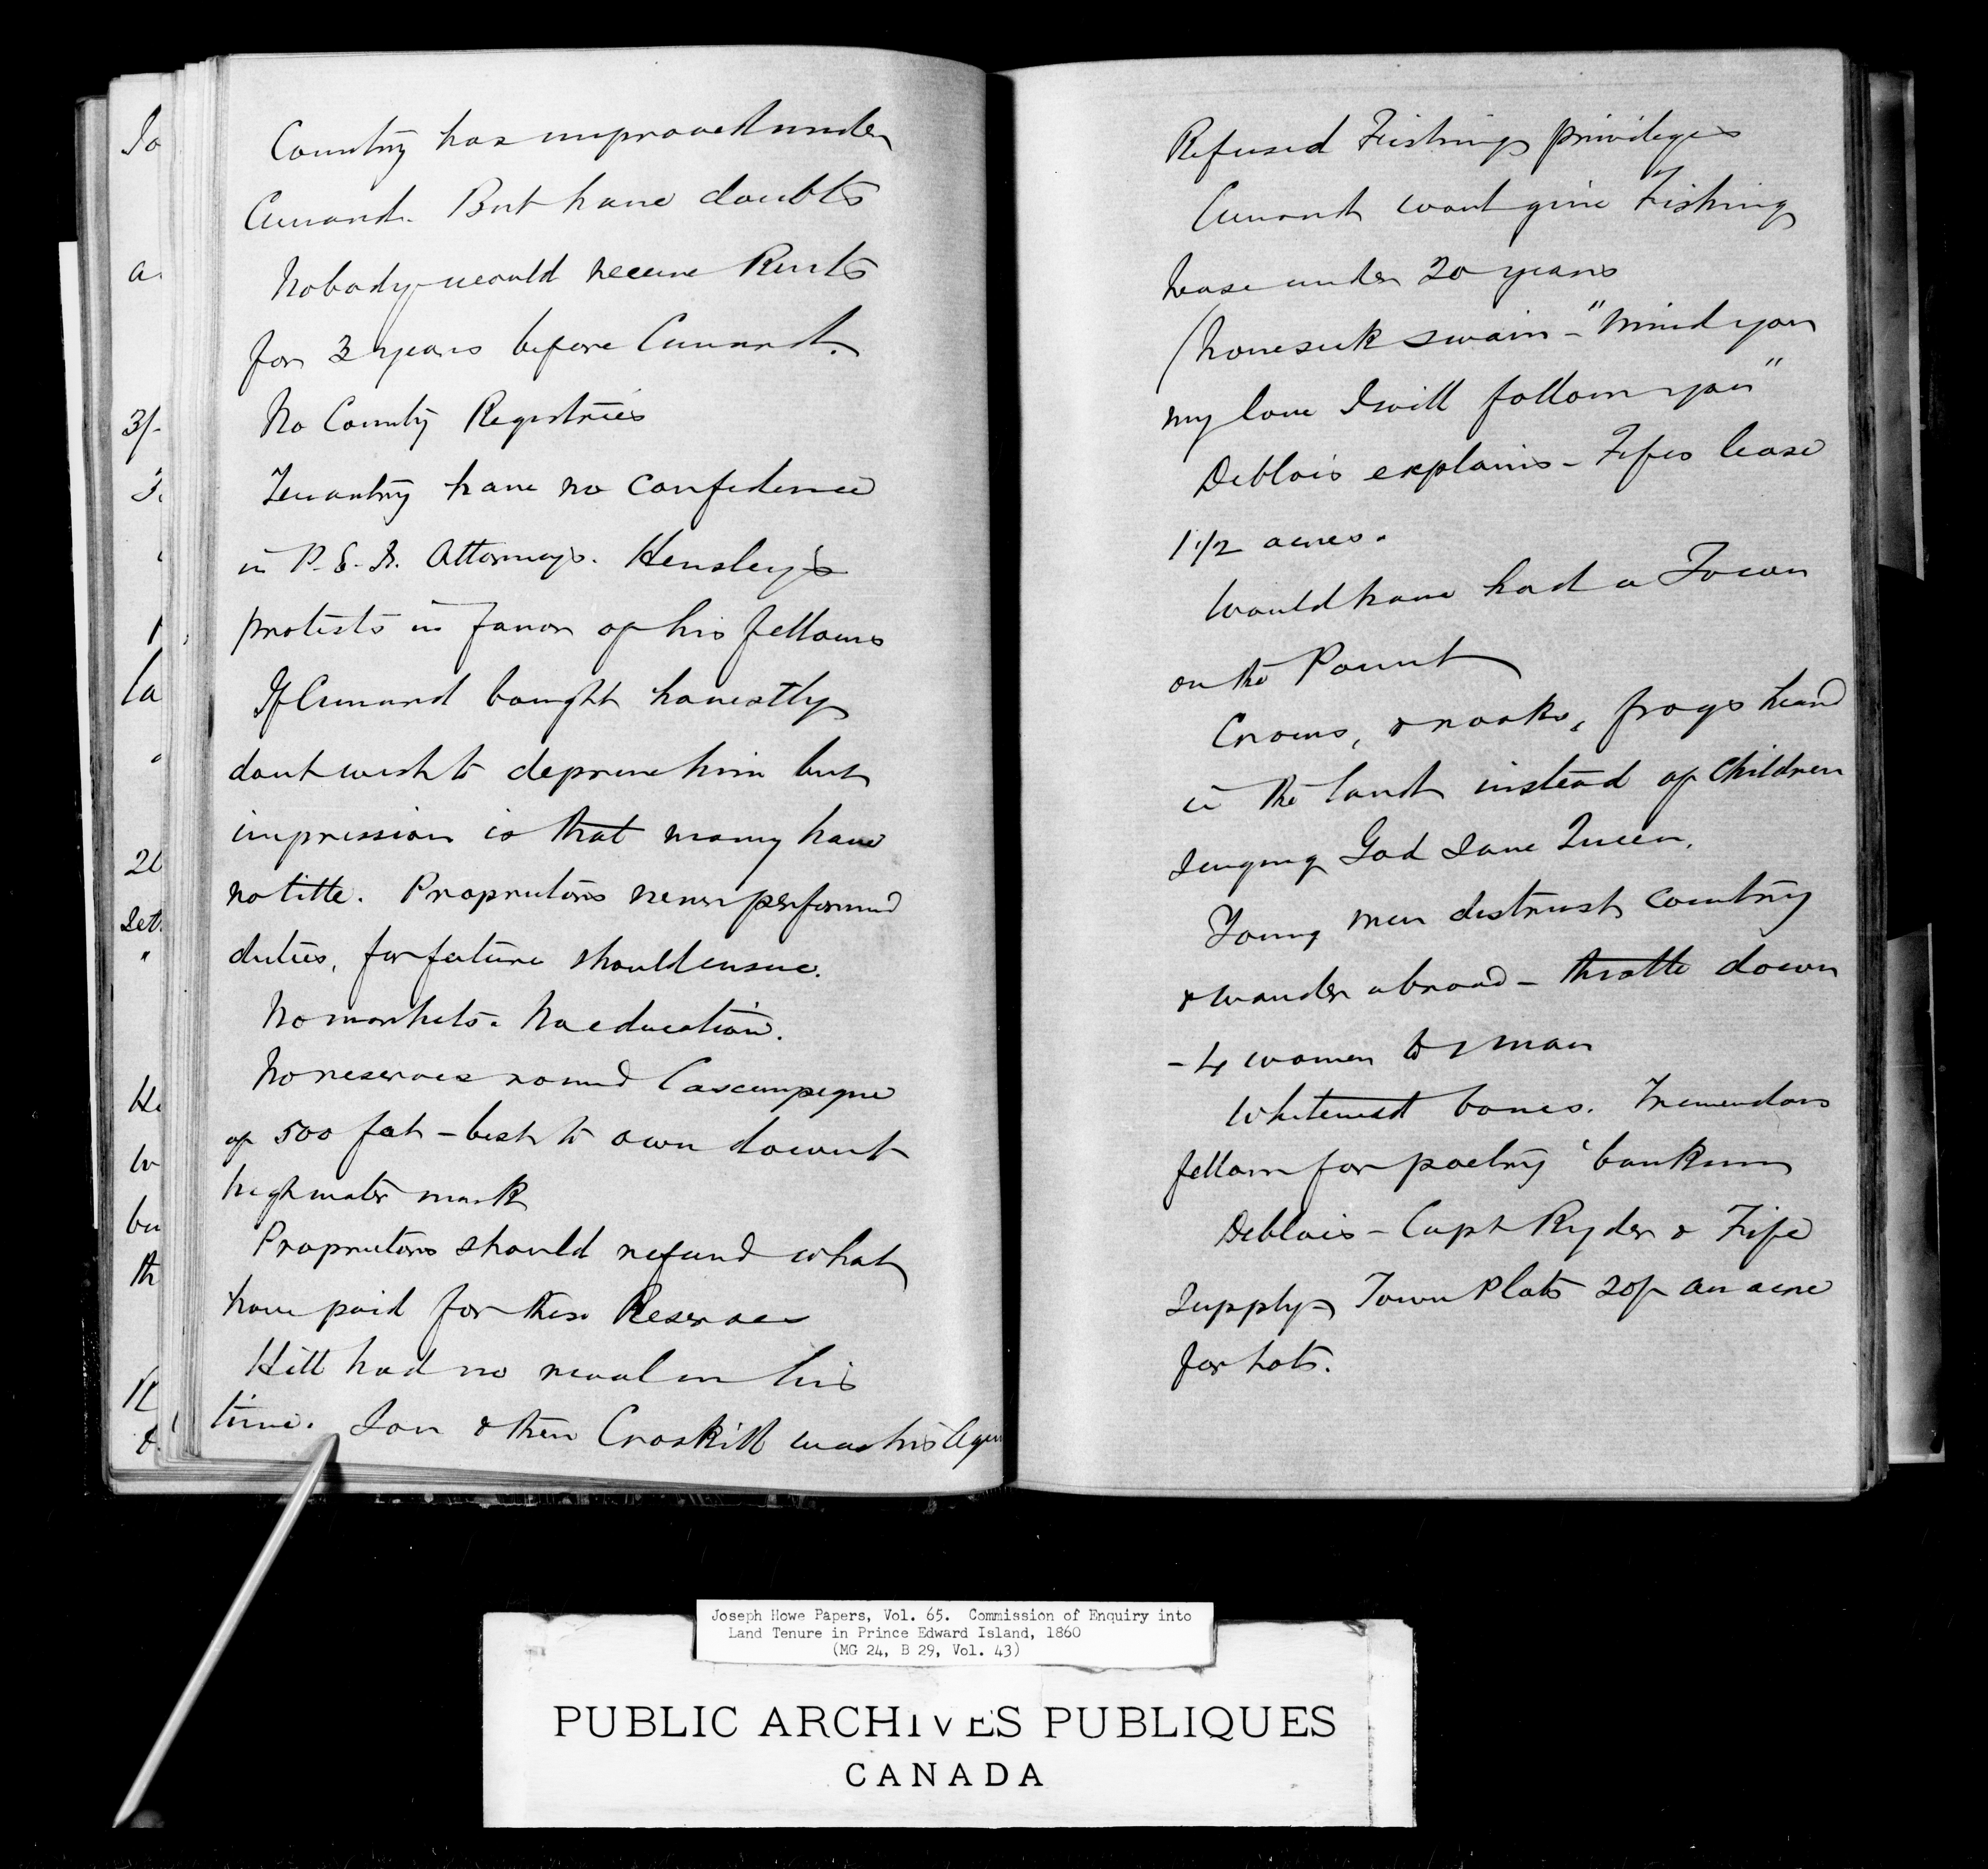 Country has improved under
Cunard. But have doubts
Nobody would receive Rents
for 3 years before Cunard.
No County Registries
Tenantry have no confidence
in P. E. I. Attorneys. Hensley
protests in favor of his fellows
If Cunard bought honestly
dont wish to deprive him but
impression is that many have
no title. Proprietors never performed
duties, forfeiture should ensue.
No markets. No education.
No reserves round Cascumpeque
of 500 feet - best to own down to
high water mark
Proprietors should refund what
have paid for these Reserves
Hill had no rival in his
time. Son & then Croskill was his Agen
Refused Fishing privileges
Cunard wont give Fishing
lease under 20 years
(homesick swain - "Mind you
my love I will follow you"
Deblois explains - Fifes lease
1 1/2 acres.
Would have had a Town
on the Point
Crows, & rooks, frogs heard
in the land instead of Children
singing God Save Queen.
Young men distrust country
& wander abroad - throttle down
- 4 women to 1 man
Whitened bones. Tremendous
fellow for poetry bunkum
Deblois - Capt Ryder & Fife
Supply Town Plots 20/- an acre
for Lots.
Joseph Howe Papers, Vol. 65. Commission of Enquiry into
Land Tenure in Prince Edward Island, 1860
(MG 24, B 29, Vol. 43)
PUBLIC ARCHIVES PUBLIQUES
CANADA